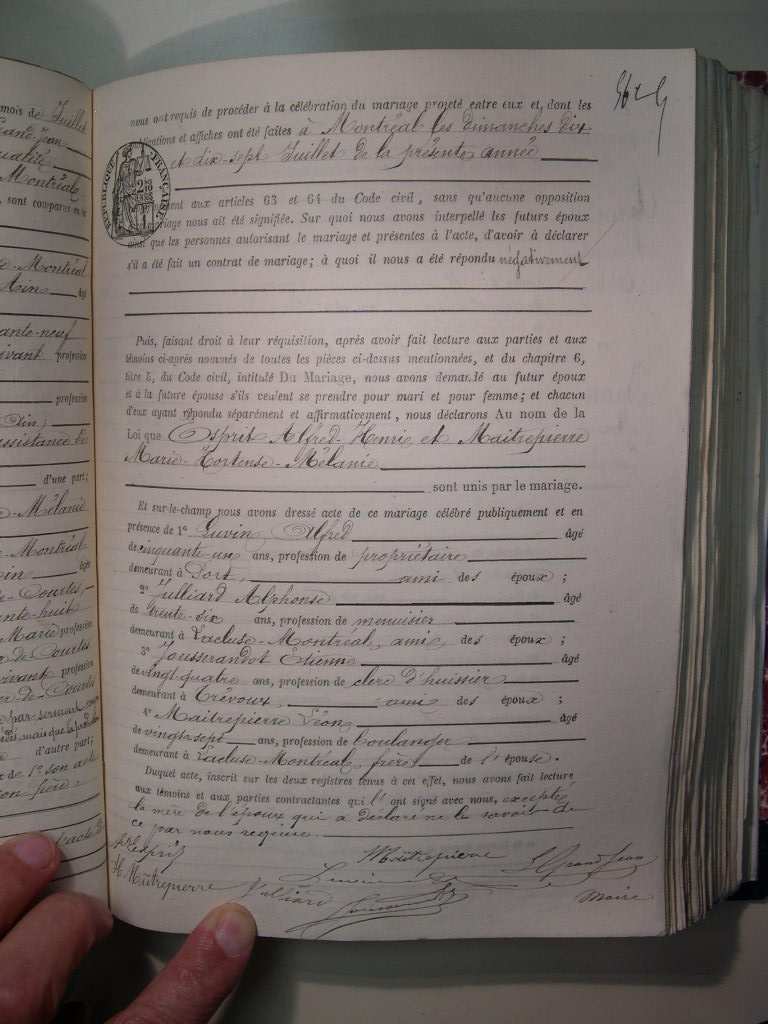 mois de Juillet
Grand-Jean
qualité
Montréal
sont comparus en
Montréal
Ain âgé
ante-neuf
vivant profession
profession
Ain,
assistance de
d'une part;
Mélanie
Montréal
Ain âgé
Courtes,
ente-huit
Marie profession
de Courtes
vivant profession
de Courtes
par serment
d'autre part;
de 1° son acte
son frère,
l'acte de
nous ont requis de procéder à la célébration du mariage projeté entre eux et, dont les
publications et affiches ont été faites à Montréal les dimanches dix
et dix-sept Juillet de la présente année
RÉPUBLIQUE FRANÇAISE
conformément aux articles 63 et 64 du Code civil, sans qu'aucune opposition
au mariage nous ait été signifiée. Sur quoi nous avons interpellé les futurs époux
ainsi que les personnes autorisant le mariage et présentes à l'acte, d'avoir à déclarer
s'il a été fait un contrat de mariage; à quoi il nous a été répondu négativement
Puis, faisant droit à leur réquisition, après avoir fait lecture aux parties et aux
témoins ci-après nommés de toutes les pièces ci-dessus mentionnées, et du chapitre 6,
titre 5, du Code civil, intitulé Du Mariage, nous avons demandé au futur époux
et à la future épouse s'ils veulent se prendre pour mari et pour femme; et chacun
d'eux ayant répondu séparément et affirmativement, nous déclarons Au nom de la
Loi que Esprit Alfred-Henri et Maitrepierre
Marie-Hortense-Mélanie
sont unis par le mariage.
Et sur-le-champ nous avons dressé acte de ce mariage célébré publiquement et en
présence de 1° Luvin Alfred âgé
de cinquante un ans, profession de propriétaire
demeurant à Port, ami des époux;
2° Julliard Alphonse âgé
de trente-six ans, profession de menuisier
demeurant à Lacluse-Montréal, ami des époux;
3° Jousserandot Etienne âgé
de vingt quatre ans, profession de clerc d'huissier
demeurant à Trévoux, ami des époux;
4° Maitrepierre Léon âgé
de vingt-sept ans, profession de boulanger
demeurant à Lacluse-Montréal, frère de l'épouse.
Duquel acte, inscrit sur les deux registres tenus à cet effet, nous avons fait lecture
aux témoins et aux parties contractantes qui l'ont signé avec nous, excepté
la mère de l'époux qui a déclaré ne le savoir de
ce par nous requise.
Esprit
Maitrepierre
GrandJean
H. Maitrepierre
Julliard
Maire